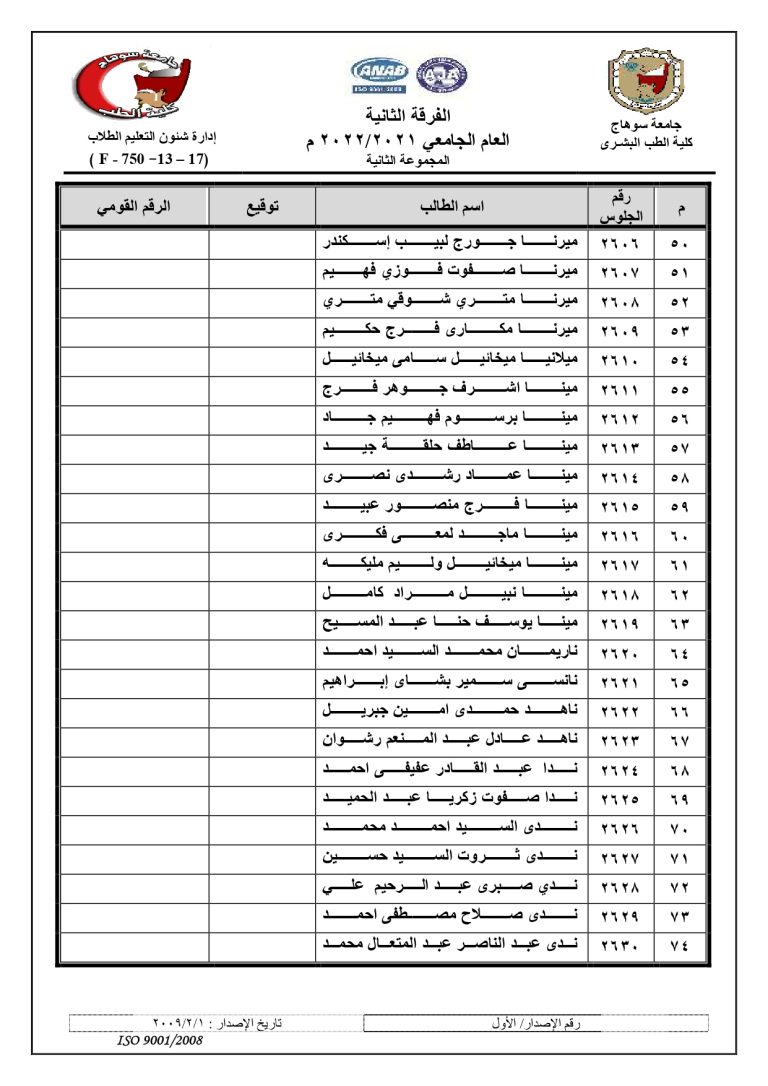 جامعة سوهاج
كلية الطب البشرى
ANAB
ISO 9001:2008
الفرقة الثانية
العام الجامعي ٢٠٢٢/٢٠٢١ م
المجموعة الثانية
جامعة سوهاج
كلية الطب
إدارة شئون التعليم الطلاب
( F - 750 –13 – 17)
م رقم الجلوس اسم الطالب توقيع الرقم القومي
٥٠ ٢٦٠٦ ميرنا جورج لبيب إسكندر
٥١ ٢٦٠٧ ميرنا صفوت فوزي فهيم
٥٢ ٢٦٠٨ ميرنا متري شوقي متري
٥٣ ٢٦٠٩ ميرنا مكارى فرج حكيم
٥٤ ٢٦١٠ ميلانيا ميخائيل سامى ميخائيل
٥٥ ٢٦١١ مينا اشرف جوهر فرج
٥٦ ٢٦١٢ مينا برسوم فهيم جاد
٥٧ ٢٦١٣ مينا عاطف حلقة جيد
٥٨ ٢٦١٤ مينا عماد رشدى نصرى
٥٩ ٢٦١٥ مينا فرج منصور عبيد
٦٠ ٢٦١٦ مينا ماجد لمعى فكرى
٦١ ٢٦١٧ مينا ميخائيل وليم مليكه
٦٢ ٢٦١٨ مينا نبيل مراد كامل
٦٣ ٢٦١٩ مينا يوسف حنا عبد المسيح
٦٤ ٢٦٢٠ ناريمان محمد السيد احمد
٦٥ ٢٦٢١ نانسى سمير بشاى إبراهيم
٦٦ ٢٦٢٢ ناهد حمدى امين جبريل
٦٧ ٢٦٢٣ ناهد عادل عبد المنعم رشوان
٦٨ ٢٦٢٤ ندا عبد القادر عفيفى احمد
٦٩ ٢٦٢٥ ندا صفوت زكريا عبد الحميد
٧٠ ٢٦٢٦ ندى السيد احمد محمد
٧١ ٢٦٢٧ ندى ثروت السيد حسين
٧٢ ٢٦٢٨ ندي صبرى عبد الرحيم علي
٧٣ ٢٦٢٩ ندى صلاح مصطفى احمد
٧٤ ٢٦٣٠ ندى عبد الناصر عبد المتعال محمد
رقم الإصدار/ الأول تاريخ الإصدار : ٢٠٠٩/٢/١
ISO 9001/2008